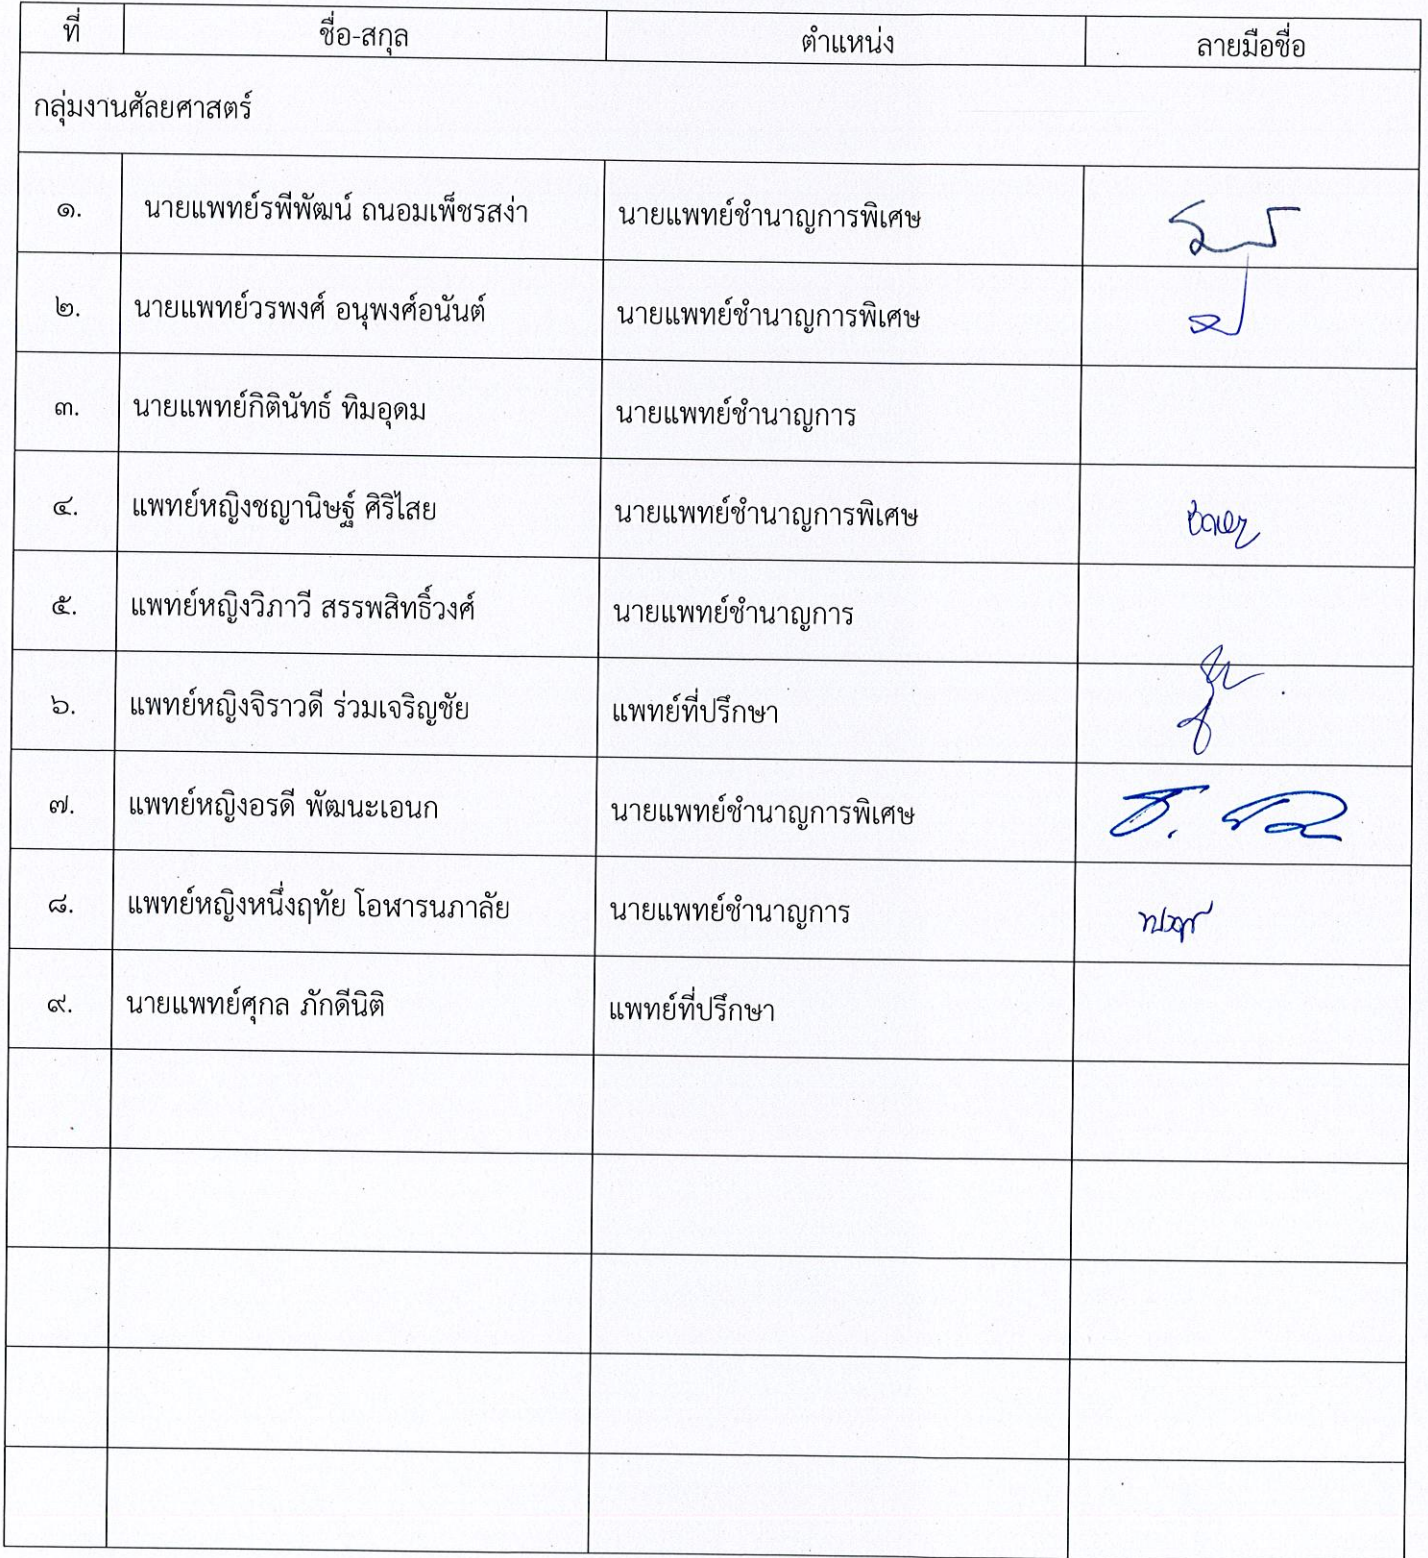 ที่ ชื่อ-สกุล ตำแหน่ง ลายมือชื่อ
กลุ่มงานศัลยศาสตร์
๑. นายแพทย์รพีพัฒน์ ถนอมเพ็ชรสง่า นายแพทย์ชำนาญการพิเศษ
๒. นายแพทย์วรพงศ์ อนุพงศ์อนันต์ นายแพทย์ชำนาญการพิเศษ
๓. นายแพทย์กิตินัทธ์ ทิมอุดม นายแพทย์ชำนาญการ
๔. แพทย์หญิงชญานิษฐ์ ศิริไสย นายแพทย์ชำนาญการพิเศษ
๕. แพทย์หญิงวิภาวี สรรพสิทธิ์วงศ์ นายแพทย์ชำนาญการ
๖. แพทย์หญิงจิราวดี ร่วมเจริญชัย แพทย์ที่ปรึกษา
๗. แพทย์หญิงอรดี พัฒนะเอนก นายแพทย์ชำนาญการพิเศษ
๘. แพทย์หญิงหนึ่งฤทัย โอฬารนภาลัย นายแพทย์ชำนาญการ
๙. นายแพทย์ศุกล ภักดีนิติ แพทย์ที่ปรึกษา